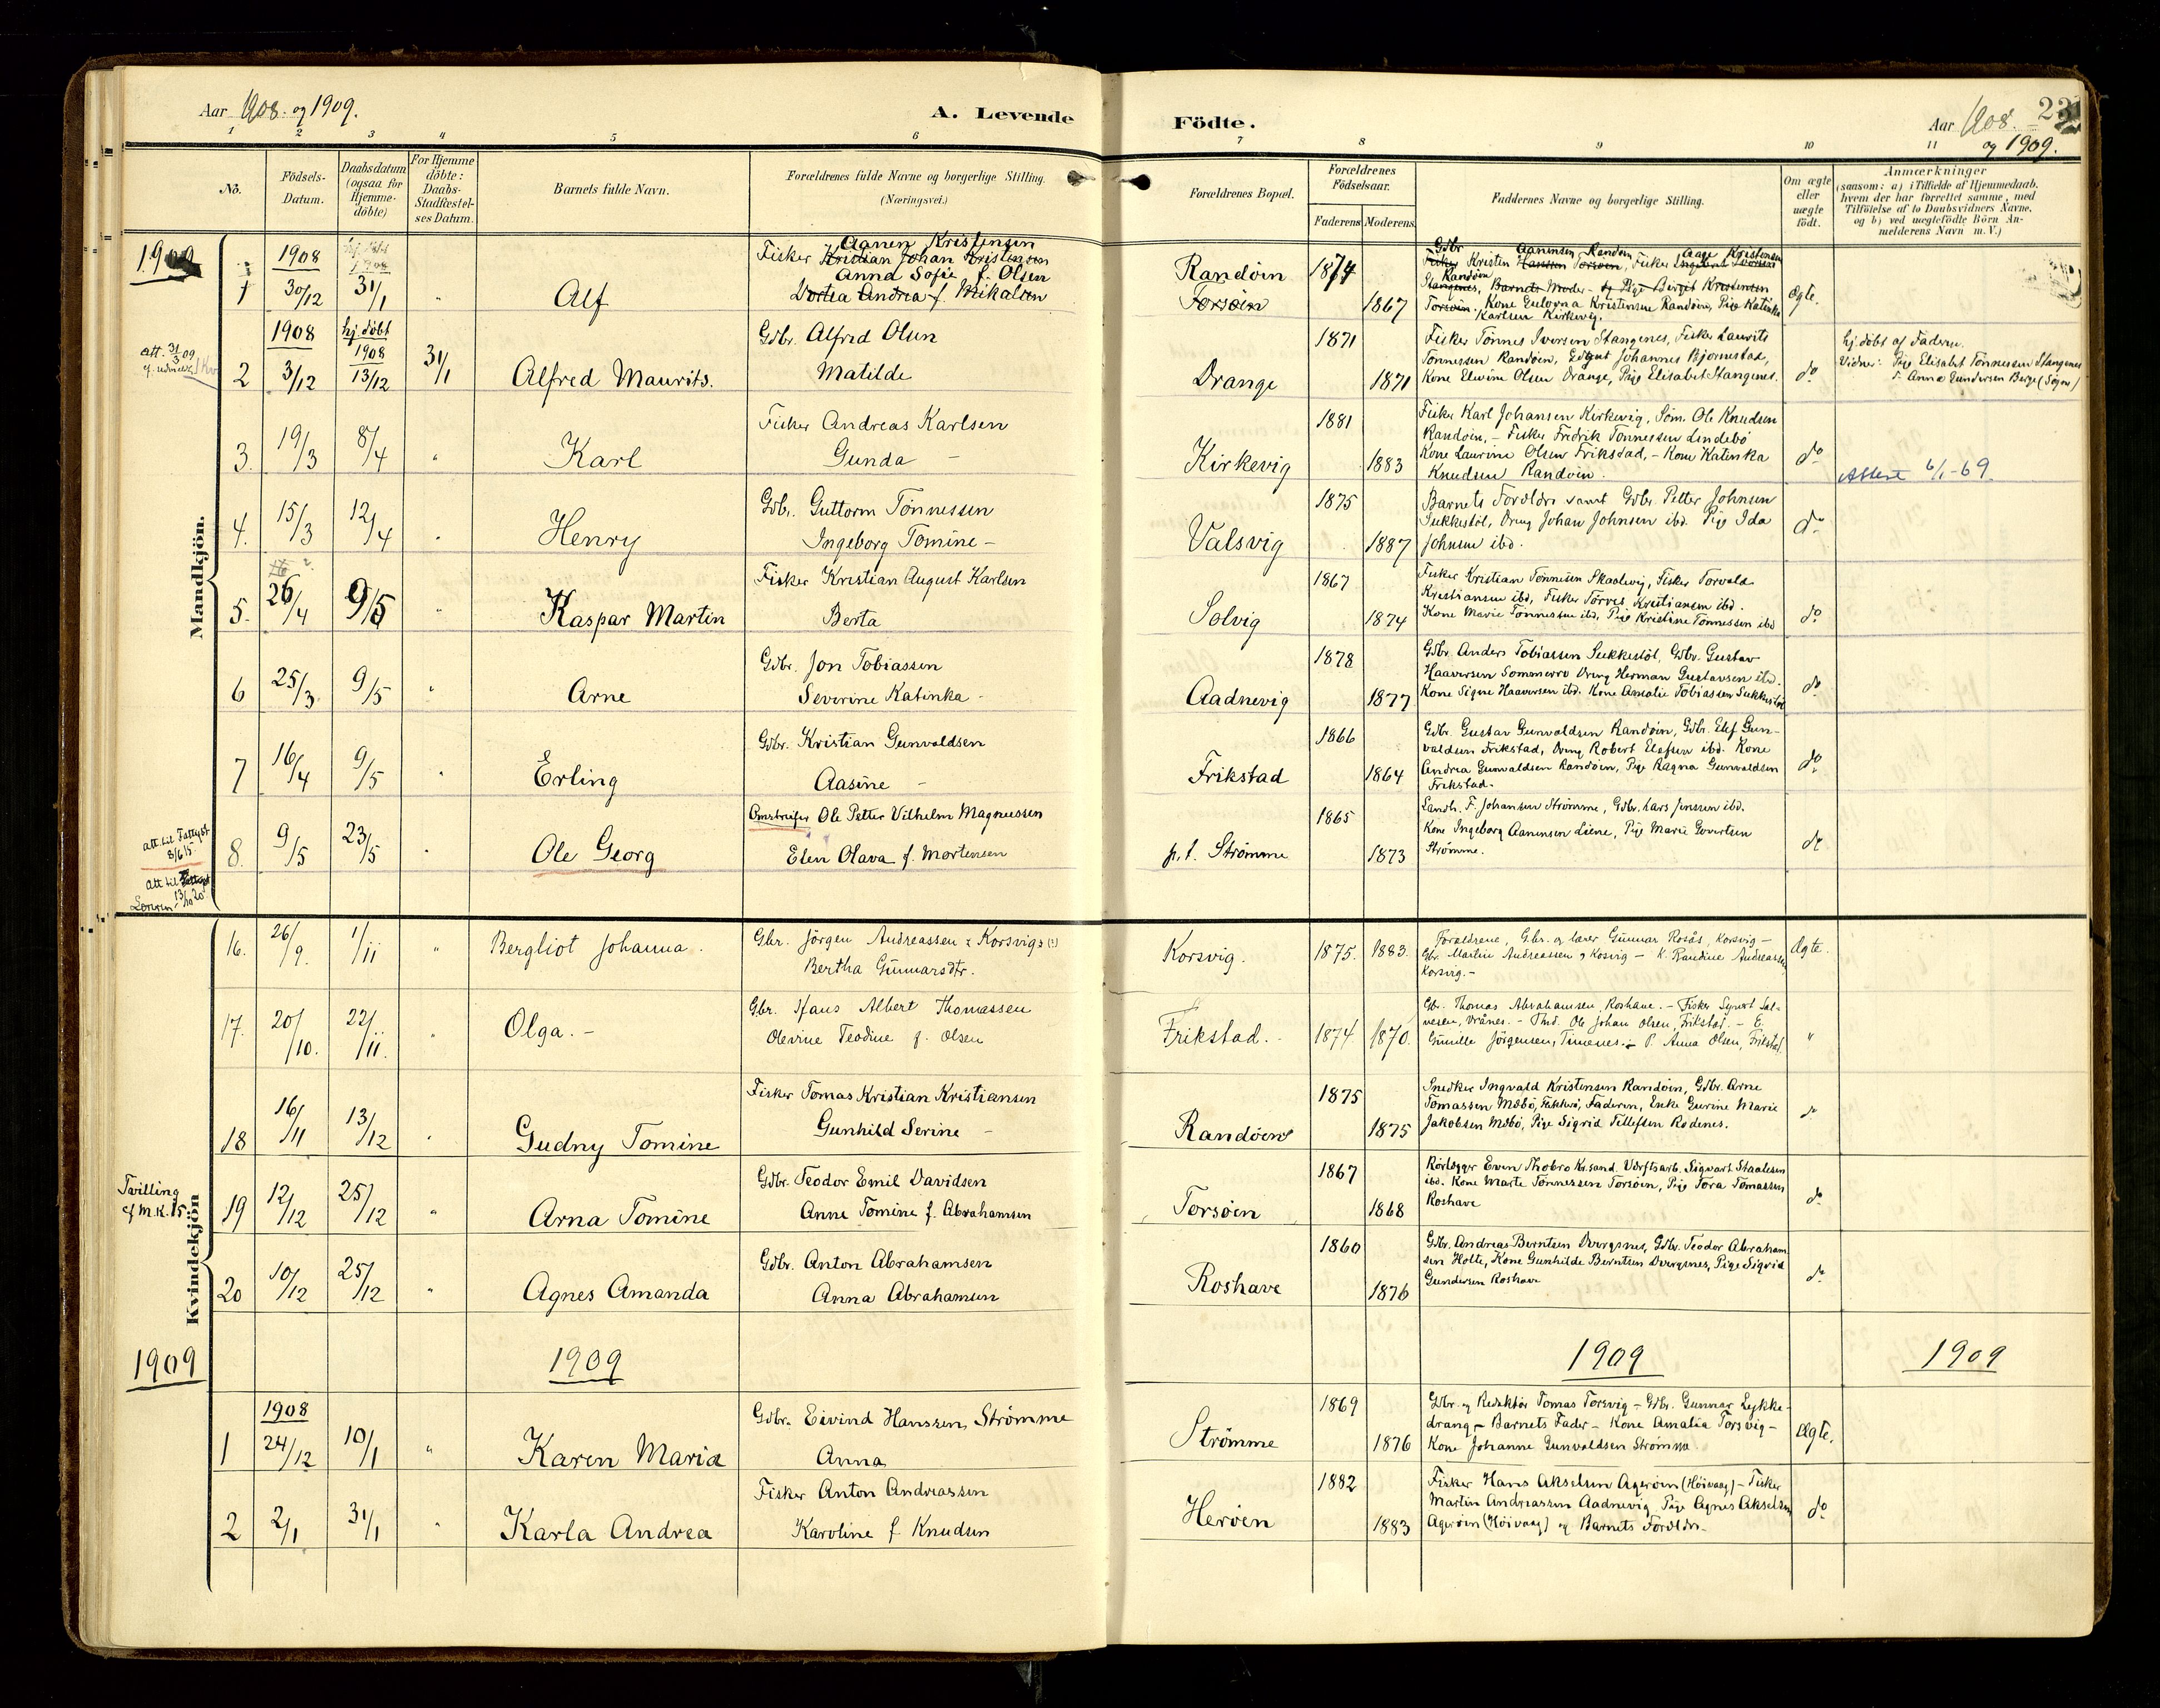 Aar 1908. og 1909.
A. Levende
Födte.
Aar 1908. og 1909.
22
1 2 3 4 5 6 7 8 9 10 11
No.
Födsels-
Datum.
Daabsdatum
(ogsaa for
Hjemme-
döbte)
For Hjemme
döbte:
Daabs-
Stadfæstel-
ses Datum.
Barnets fulde Navn.
Forældrenes fulde Navne og borgerlige Stilling.
(Næringsvei.)
Forældrenes Bopæl.
Forældrenes
Födselsaar.
Faderens
Moderens
Faddernes Navne og borgerlige Stilling.
Om ægte
eller
uægte
födt.
Anmærkninger
(saasom: a) i Tilfælde af Hjemmedaab,
hvem der har forrettet samme, med
Tilföielse af to Daabsvidners Navne,
og b) ved uegtefödte Börn An-
melderens Navn m.V.)
1909
Mandkjön.
1
1908
30/12
31/1
"
Alf
Agnen Kristensen
Fisker Kristian Johan Kristensen
Anna Sofie f. Olsen
Dortea Andrea f. Mikalsen
Randöin
Torsöin
1874
1867
Gdbr Aanensen Randöin Aage Kristensen
Fisker Kristen Hansen Torsöin, Fisker
Randöin
Stangenes, Barnets Moder - og Pige Bergit Kristensen
Torsöin. Kone Gulovna Kristensen Randöin, Pige Katinka
Karlsen Kirkevig.
Ægte.
att. 31/3 09
2
1908
3/12
hj. döbt
1908
13/12
31/1
Alfred Maurits.
Gdbr. Alfred Olsen
Matilde
Drange
1871
1871
Fisker Tönnes Iversen Stangenes, Fisker Laurits
Tönnessen Randöin, Johannes Bjornestad,
Kone Elvine Olsen Drange, Pige Elisabet Stangenes.
do
hj. döbt af Faderen.
Vidner: Pige Elisabet Tönnessen Stangenes
" Anna Gundersen Berge (Sogne)
3.
19/3
8/4
"
Karl
Fisker Andreas Karlsen
Gunda –
Kirkevig
1881
1883
Fisker Karl Johansen Kirkevig, Söm. Ole Knudsen
Randöin, – Fisker Fredrik Tönnessen Lindebö
Kone Laurine Olsen Frikstad, – Kone Katinka
Knudsen Randöin.
do
Attest 6/1-69.
4.
15/3
12/4
"
Henry
Gdbr. Guttorm Tönnessen
Ingeborg Tomine –
Valsvig
1875
1887
Barnets Forældre samt Gdbr. Petter Johnsen
Sukkestöl, Dreng Johan Johnsen ibd. Pige Ida
Johnsen ibd.
do
5.
26/4
9/5
"
Kaspar Martin
Fisker Kristian August Karlsen
Berta
Solvig
1867
1874
Fisker Kristian Tönnesen Skaalevig, Fisker Torvald
Kristiansen ibd, Fisker Törres Kristiansen ibd.
Kone Marie Tönnessen ibd, Pige Kristine Tönnessen ibd
do
6
25/3
9/5
"
Arne
Gdbr. Jon Tobiassen
Severine Katinka –
Aadnevig
1878
1877
Gdbr. Anders Tobiassen Sukkestöl, Gdbr. Gustav
Haaversen Sommerro Dreng Herman Gustavsen ibd.
Kone Signe Haaversen ibd. Kone Amalie Tobiassen Sukkestöl
do
7
16/4
9/5
"
Erling
Gdbr. Kristian Gunvaldsen
Aasine –
Frikstad
1866
1864
Gdbr. Gustav Gunvaldsen Randöin, Gdbr. Elef Gun-
valdsen Frikstad, Dreng Robert Elefsen ibd. Kone
Andrea Gunvaldsen Randöin, Pige Ragna Gunvaldsen
Frikstad.
do
att. til Fattigst
8/6 15.
Att til
13/10 20
8.
9/5
23/5
"
Ole Georg
Omstreifer Ole Petter Vilhelm Magnussen
Elen Olava f. Mortensen
p.t. Strömme
1865
1873
Landh. F. Johansen Strömme, Gdbr. Lars Jenssen ibd.
Kone Ingeborg Aanensen Liene, Pige Marie Govertsen
Strömme.
do
Kvindekjön
16.
26/9.
1/11
"
Bergliot Johanna.
Gbr. Jörgen Andreassen Korsvig
Bertha Gunnarsdtr.
Korsvig.
1875.
1883.
Forældrene, Gbr. og lærer Gunnar Rosås, Korsvig –
Gbr. Martin Andreassen, Kosvig – K. Randine Andreassen
Korsvig. –
Ægte.
17.
20/10.
22/11.
"
Olga. –
Gbr. Hans Albert Thomassen
Olevine Teodine f. Olsen
Frikstad.
1874.
1870.
Gbr. Thomas Abrahamsen, Roshave. – Fisker Syvert Sal-
vesen, Vrånes. – Tmd. Ole Johan Olsen, Frikstad. – E.
Gunille Jörgensen, Timenes. – P. Anna Olsen, Frikstad.
"
18
16/11
13/12
"
Gudny Tomine
Fisker Tomas Kristian Kristiansen
Gunhild Serine –
Randöen
1875
1875
Snedker Ingvald Kristensen Randöin, Gdbr. Arne
Tomassen Mæbö, Faderen, Enke Gurine Marie
Jakobsen Mæbö, Pige Sigrid Tellefsen Rödenes.
do
Tvilling
cf M.K. 15.
19
12/12
25/12
"
Arna Tomine
Gdbr. Teodor Emil Davidsen
Anne Tomine f. Abrahamsen
Torsöen
1867
1868
Rörlægger Even Thobro Kr.sand. Verftsarb. Sigvart Staalesen
ibd. Kone Marte Tönnessen Torsöin, Pige Tora Tomassen
Roshave
do
20
10/12
25/12
"
Agnes Amanda
Gdbr. Anton Abrahamsen
Anna Abrahamsen
Roshave
1860
1876
Gdbr. Andreas Berntsen Dvergsnes, Gdbr. Teodor Abraham
sen Holte, Kone Gunhilde Berntsen Dvergsnes, Pige Sigrid
Gundersen Roshave
do
1909
1909
1909
1909
1
1908
24/12
10/1
"
Karen Maria
Gdbr. Eivind Hanssen, Strömme
Anna
Strömme
1869
1876
Gdbr. og Redaktör Tomas Torsvig – Gdbr. Gunnar Lykke-
drang – Barnets Fader – Kone Amalia Torsvig –
Kone Johanne Gunvaldsen Strömme
Ægte.
2
2/1
31/1
"
Karla Andrea
Fisker Anton Andreassen
Karoline f Knudsen
Heröen
1882
1883
Fisker Hans Akselsen Ageröin (Höivaag) – Fisker
Martin Andreassen Aadnevig, Pige Agnes Akselsen
Ageröin (Höivaag) og Barnets Forældre
do